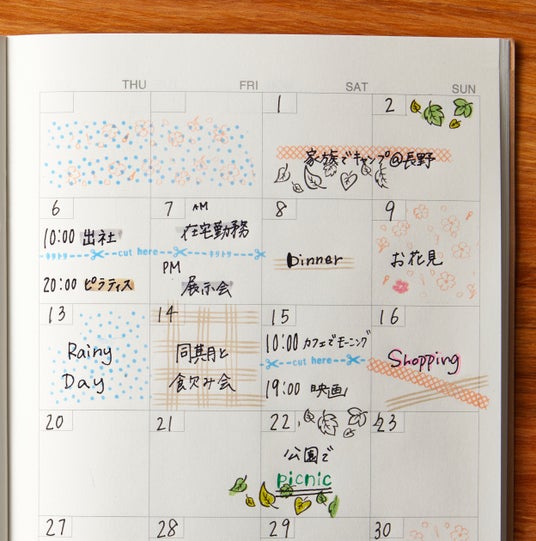 THU FRI SAT SUN
1 2
家族でキャンプ@長野
6 7 8 9
AM
10:00 出社
在宅勤務
キリトリ cut here キリトリ
Dinner
お花見
PM
20:00 ピラティス
展示会
13 14 15 16
10:00 カフェでモーニング
Rainy
Day
同期と
飲み会
cut here
19:00 映画
Shopping
20 21 22 23
公園で
picnic
27 28 29 30